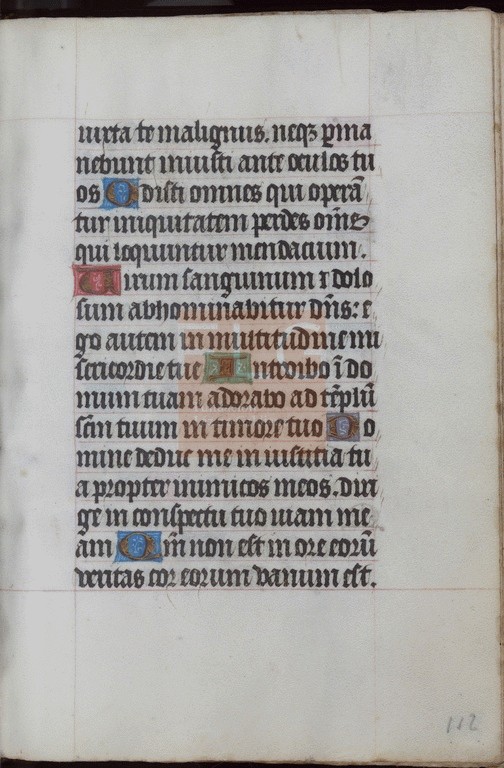 iuxta te malignus. neqꝫ ꝑma
nebunt iniusti ante oculos tu
os Odisti omnes qui operā
tur iniquitatem perdes om̄es
qui loquuntur mendacium.
Uirum sanguinum ⁊ dolo
sum abhominabitur dn̄s: e
go autem in multitudine mi
sericordie tue Introibo ī do
mum tuam adorabo ad tēplū
scm̄ tuum in timore tuo Do
mine deduc me in iusticia tu
a propter inimicos meos. diri
ge in conspectu tuo uiam me
am Qm̄ non est in ore eorū
veritas cor eorum vanum est.
112